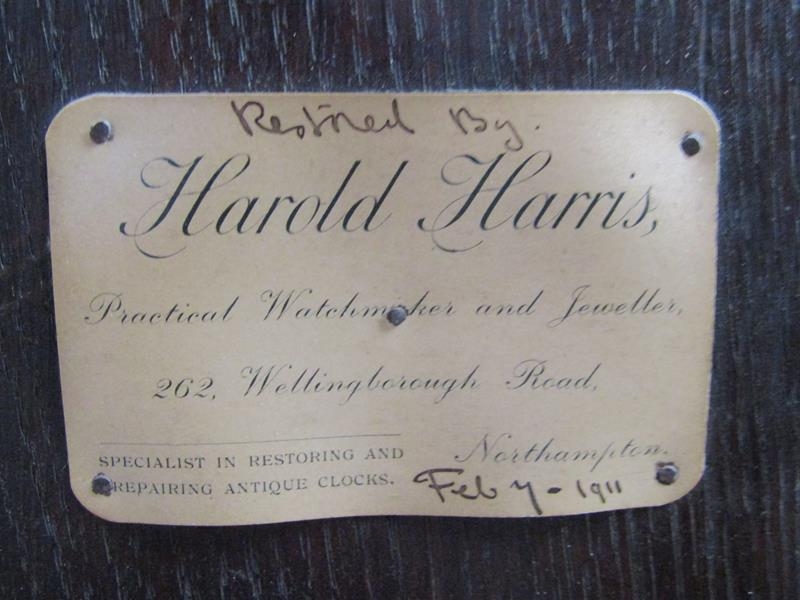 Restored By.
Harold Harris,
Practical Watchmaker and Jeweller,
262, Wellingborough Road,
Northampton.
SPECIALIST IN RESTORING AND
REPAIRING ANTIQUE CLOCKS.
Feb 7 - 1911